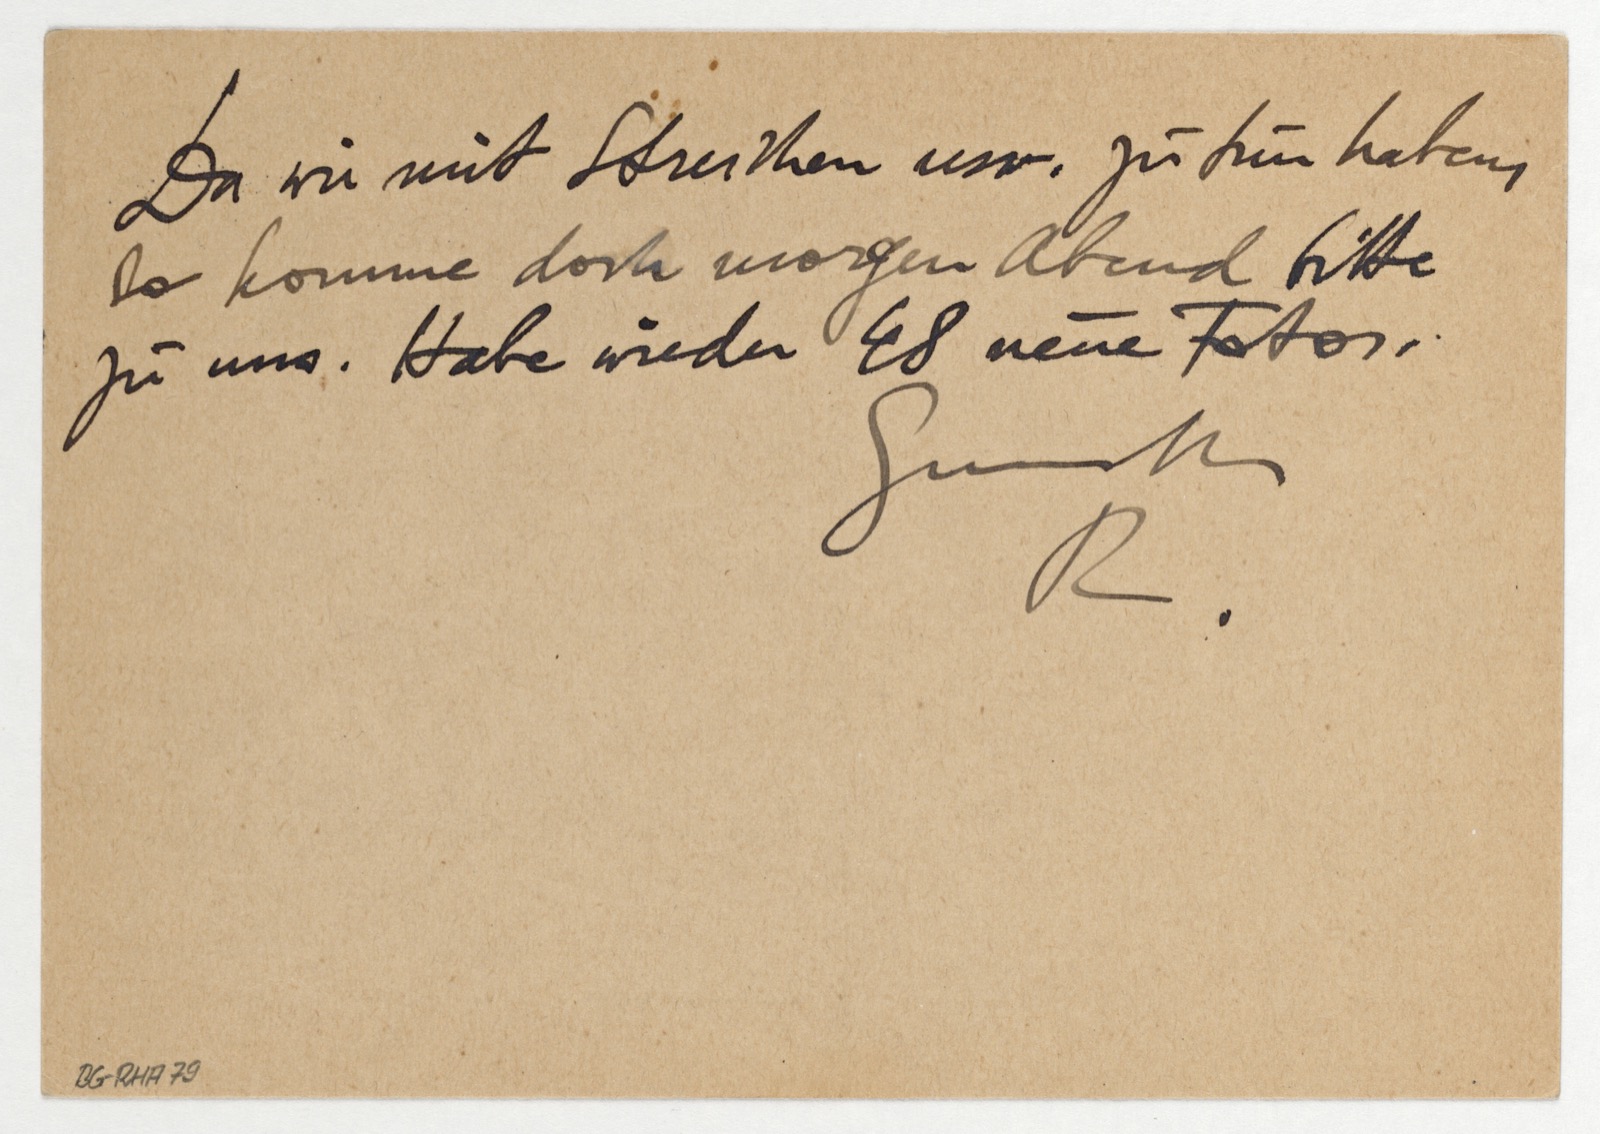 Da wir mit Streichen usw. zu tun haben,
so komme doch morgen Abend bitte
zu uns. Habe wieder 48 neue Fotos.
R.
BG-RHA 79